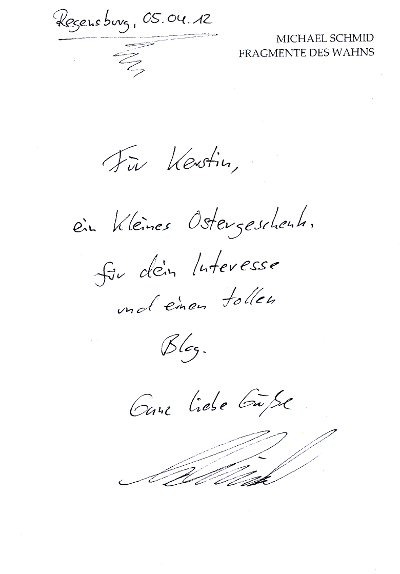 Regensburg, 05.04.12
MICHAEL SCHMID
FRAGMENTE DES WAHNS
Für Kerstin,
ein kleines Ostergeschenk.
für dein Interesse
und einen tollen
Blog.
Ganz liebe Grüße